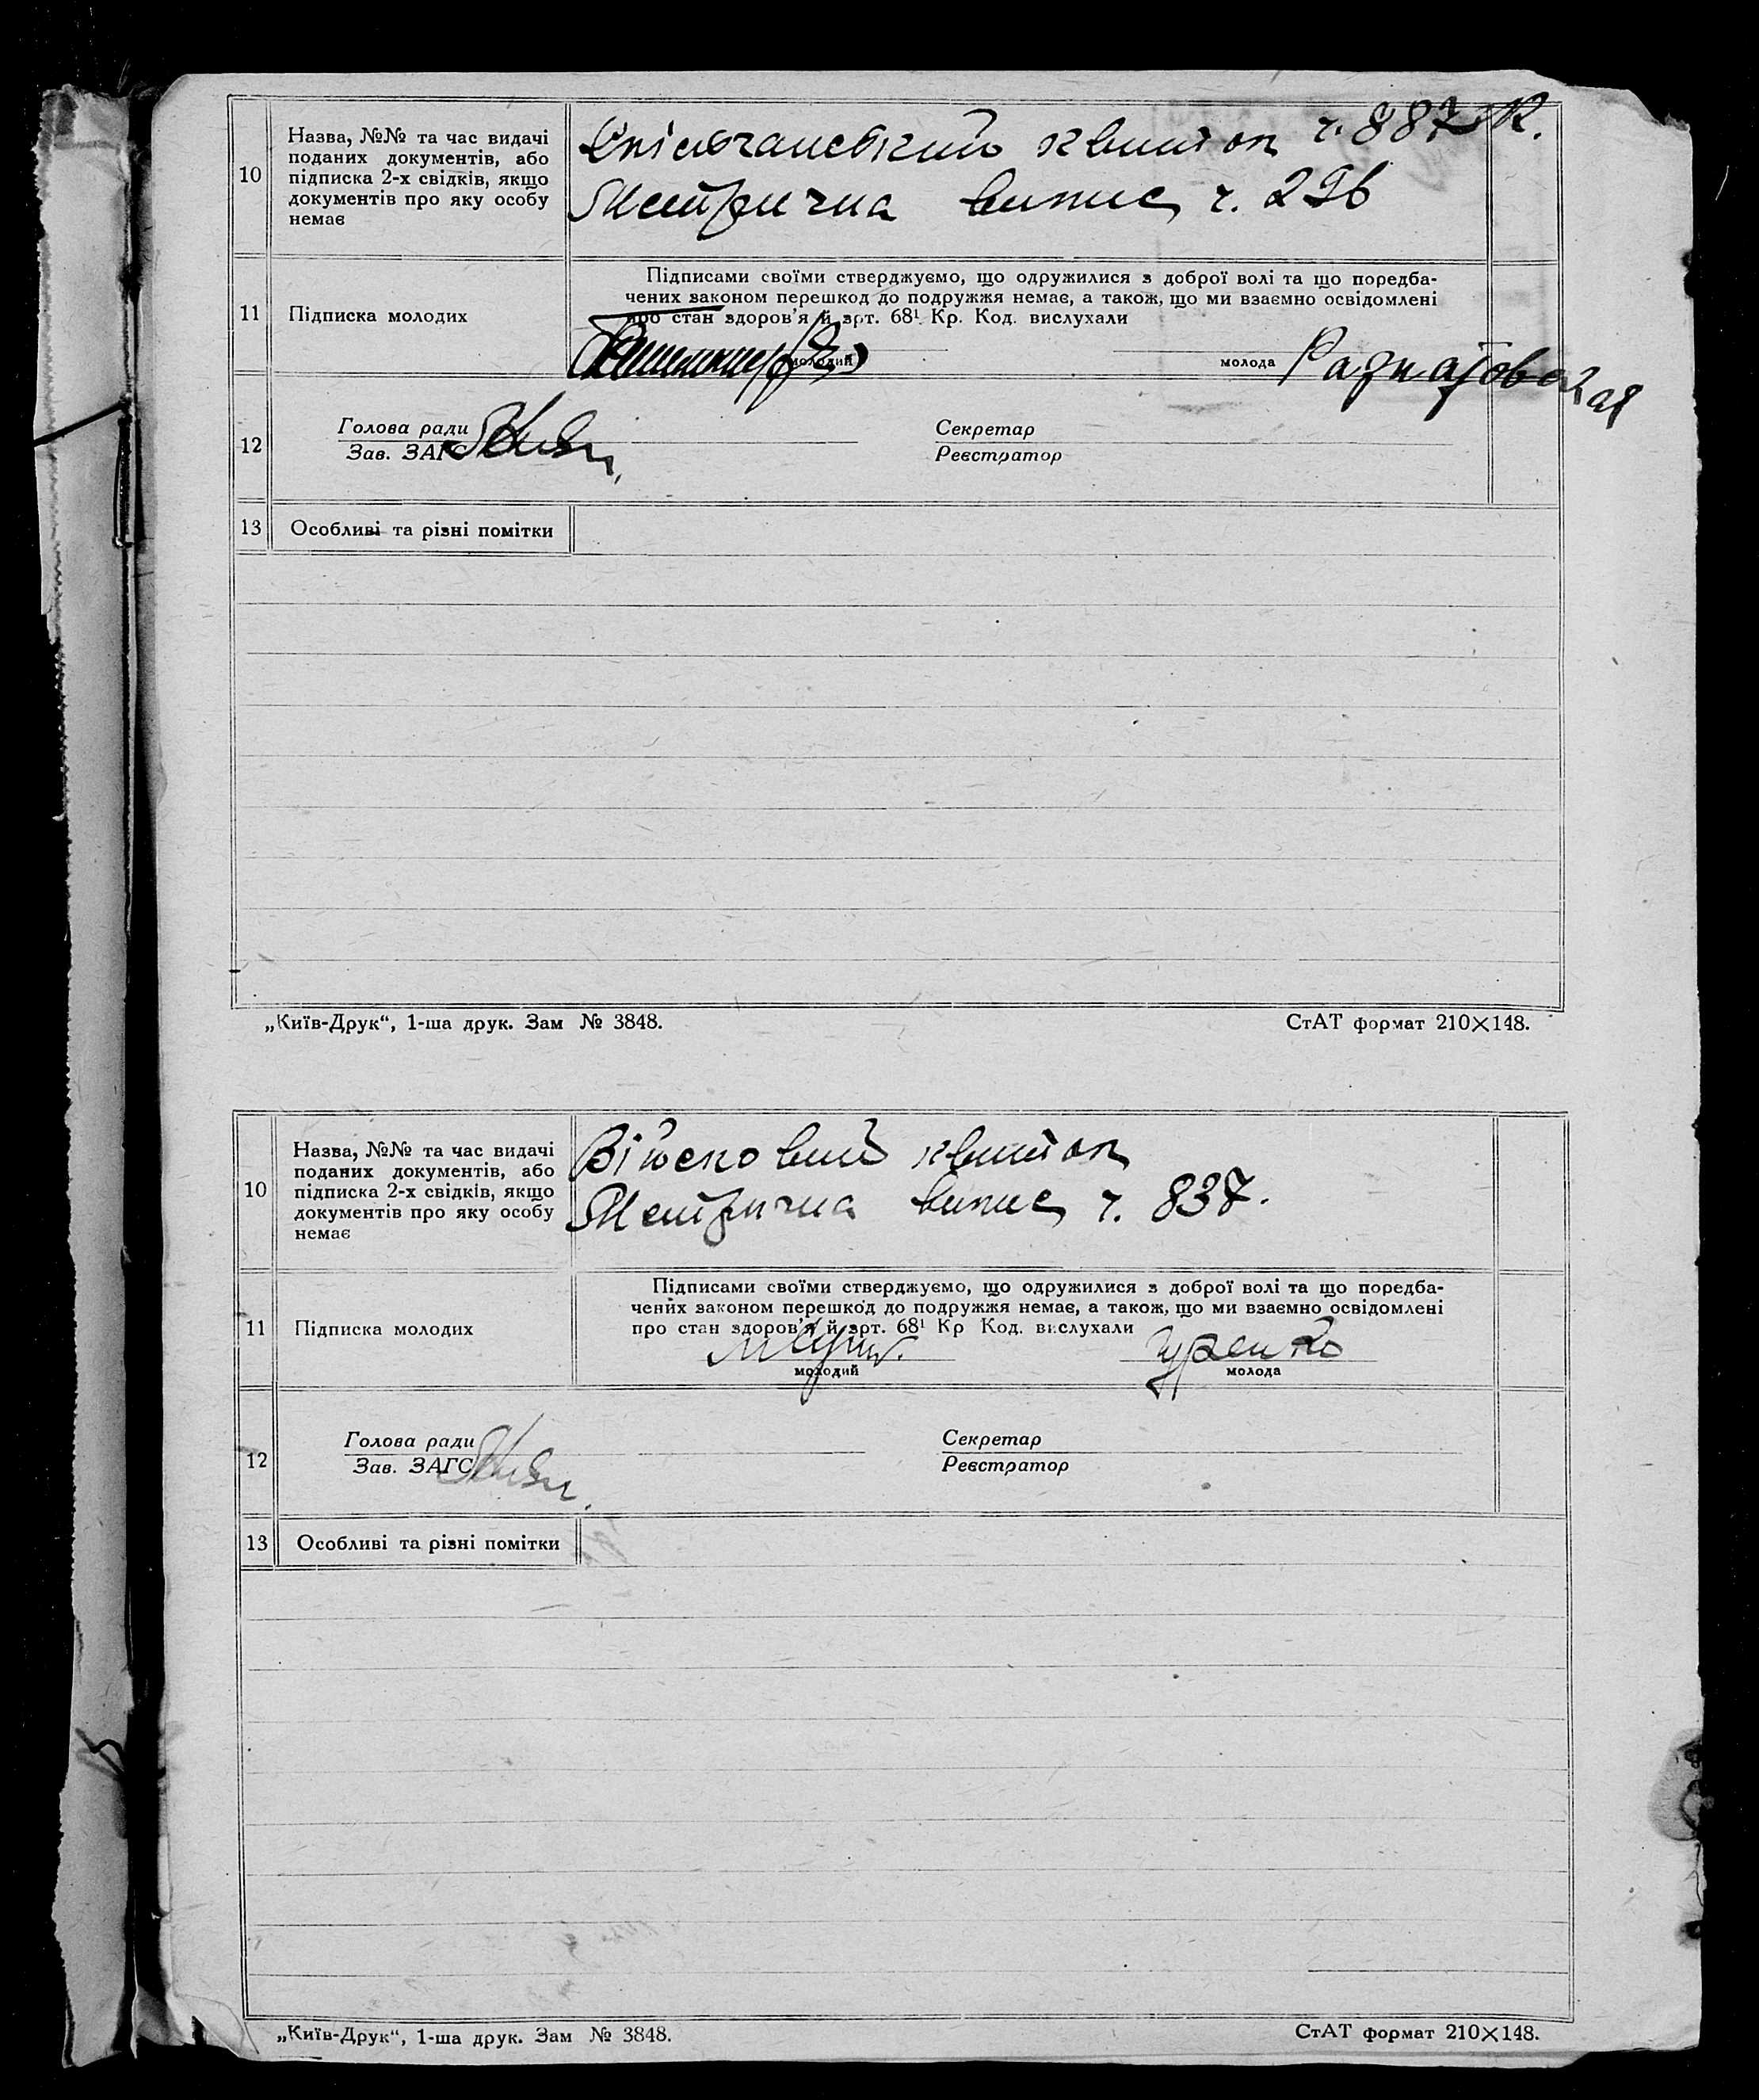 10
Назва, №№ та час видачі
поданих документів, або
підписка 2-х свідків, якщо
документів про яку особу
немає
Спілчанський квиток ч. 887
Метрична випис ч. 296
11
Підписка молодих
Підписами своїми стверджуємо, що одружилися з доброї волі та що поредба-
чених законом перешкод до подружжя немає, а також, що ми взаємно освідомлені
про стан здоров'я й арт. 68¹ Кр. Код. вислухали
молодий
молода
12
Голова ради
Зав. ЗАГС
Секретар
Реєстратор
13
Особливі та різні помітки
„Київ-Друк“, 1-ша друк. Зам № 3848.
СтАТ формат 210×148.
10
Назва, №№ та час видачі
поданих документів, або
підписка 2-х свідків, якщо
документів про яку особу
немає
Військовий квиток
Метрична випис ч. 837.
11
Підписка молодих
Підписами своїми стверджуємо, що одружилися з доброї волі та що поредба-
чених законом перешкод до подружжя немає, а також, що ми взаємно освідомлені
про стан здоров'я й арт. 68¹ Кр Код. вислухали
молодий
молода
12
Голова ради
Зав. ЗАГС
Секретар
Реєстратор
13
Особливі та різні помітки
„Київ-Друк“, 1-ша друк. Зам № 3848.
СтАТ формат 210×148.